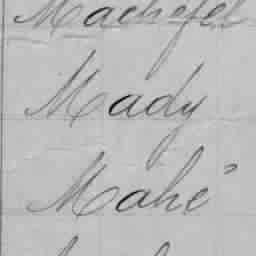 Machefel
Mady
Mahé